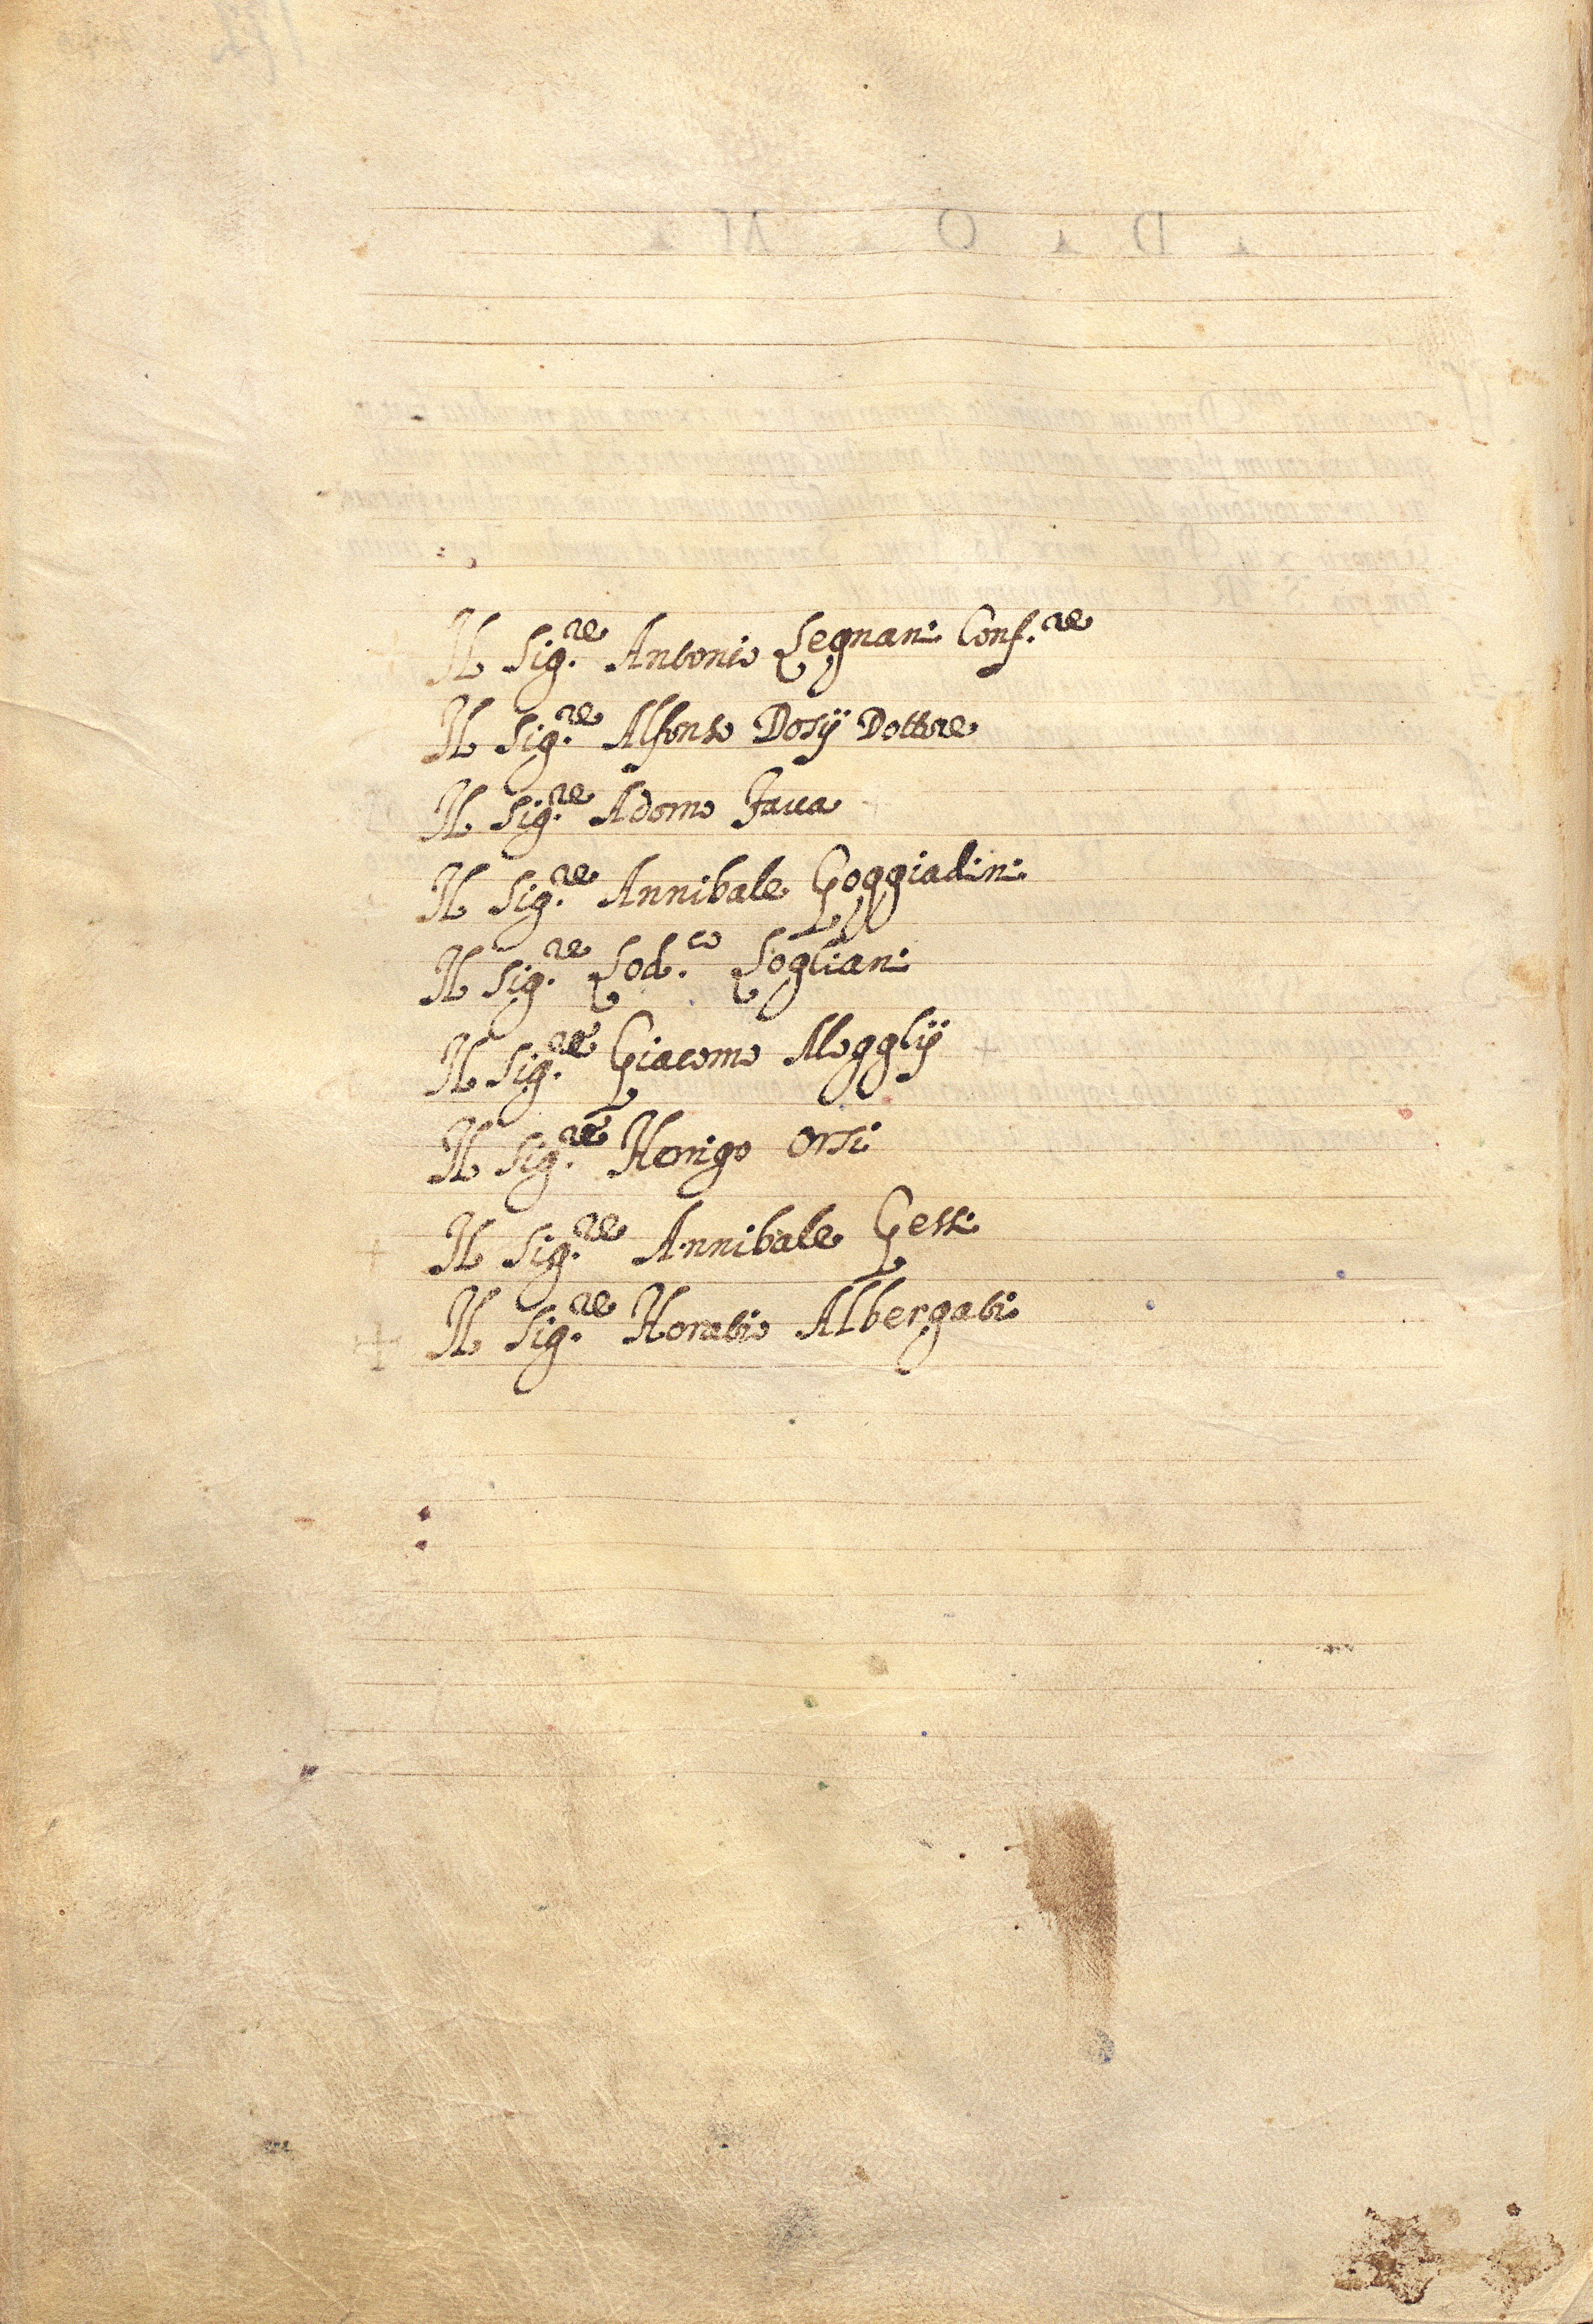 Il Sig.re Antonio Legnani Conf.re
Il Sig.re Alfonso Dosÿ Dottore
Il Sig.re Adorno Faua
Il Sig.re Annibale Goggiadini
Il Sig.re Lod.co Logliani
Il Sig.re Giacomo Mogglÿ
Il Sig.re Horrigo Orsi
Il Sig.re Annibale Gessi
Il Sig.re Horatio Albergati